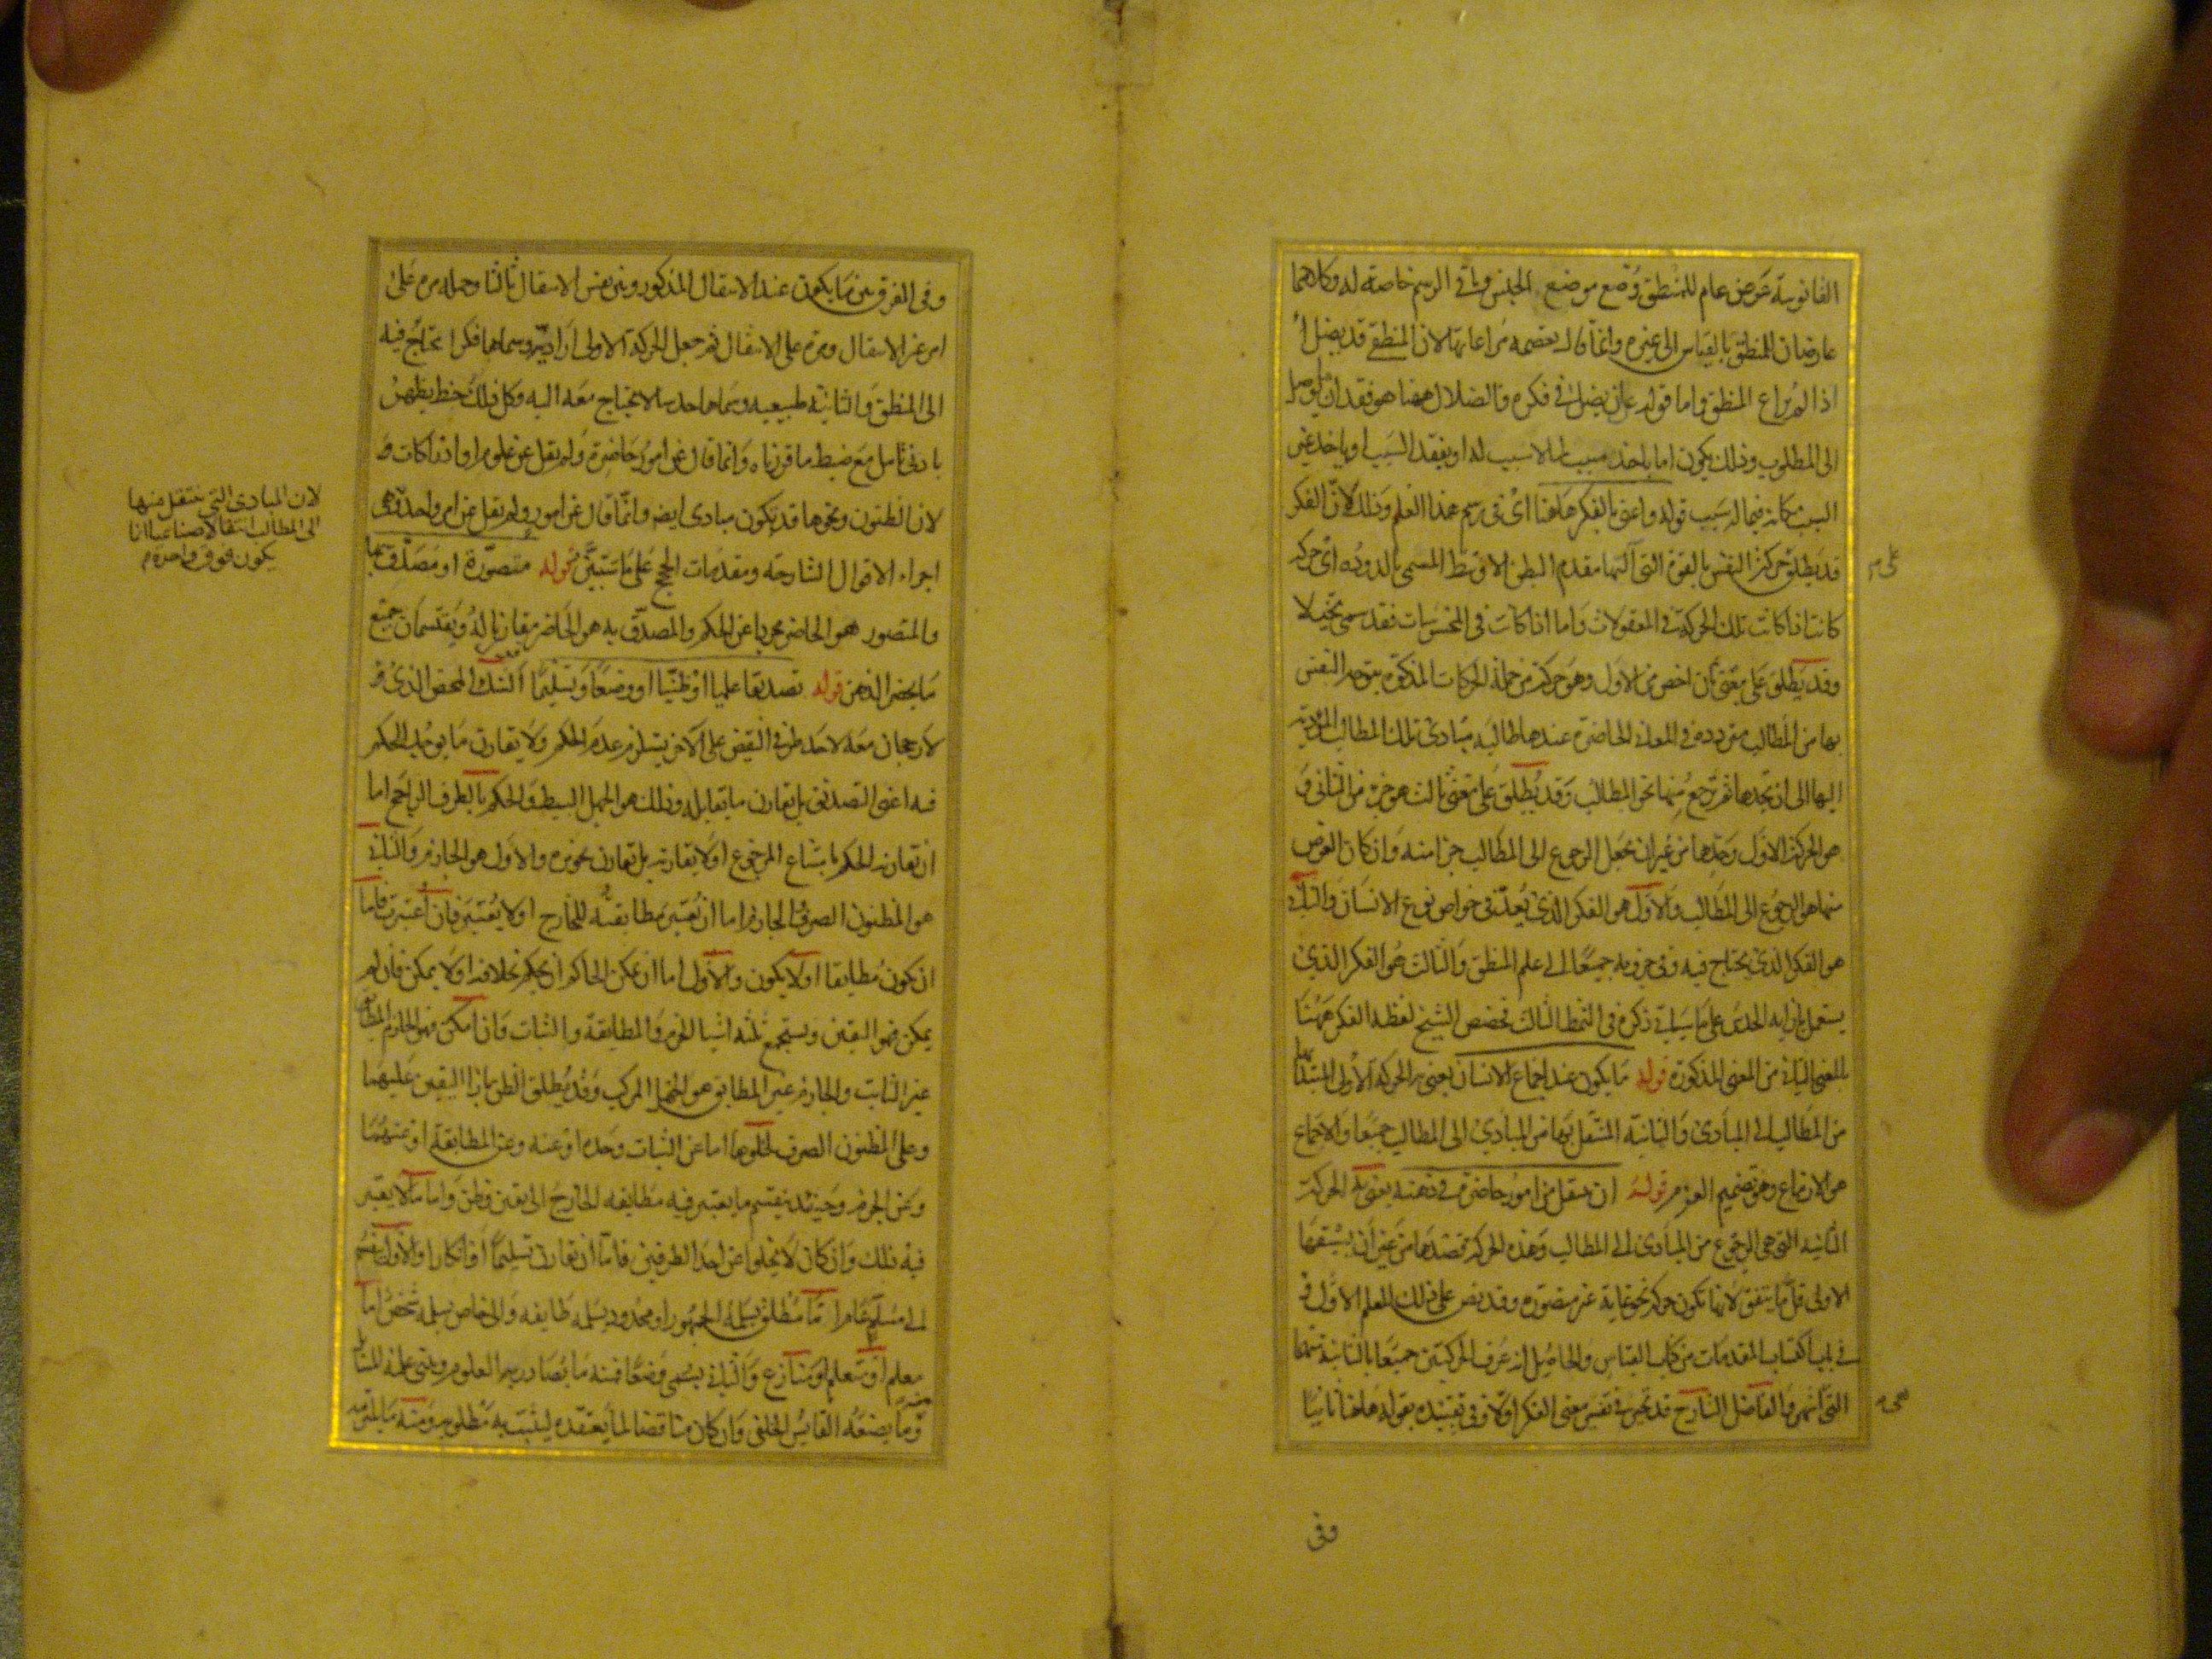 القانونية عرض عام للمنطق وضع موضع الجنس وباقي الرسم خاصة له وكلاهما
عارضان للمنطق بالقياس الى غيره وانما قال تعصمه مراعاتها لان المنطقي قد يضل
اذا لم يراع المنطق واما قوله عن ان يضل في فكره فالضلال ههنا هو فقدان ما يوصل
الى المطلوب وذلك يكون اما باخذ سبب لما لا سبب له او بفقد السبب او باخذ غير
السبب مكانه فيما له سبب قوله واعني بالفكر هاهنا اى في رسم هذا العلم وذلك لان الفكر
قد يطلق على حركة النفس بالقوة التي آلتها مقدم البطن الاوسط المسمى بالدودة اى حركة
كانت اذا كانت تلك الحركة في المعقولات واما اذا كانت في المحسوسات فقد سمى تخيلا
وقد يطلق على معنى ثان اخص من الاول وهو حركة من جملة الحركات المذكورة يتوجه النفس
بها من المطالب مترددة في المعاني الحاضرة عندها طالبة مبادى تلك المطالب المؤدية
اليها الى ان تجدها ثم ترجع منها نحو المطالب وقد يطلق على معنى ثالث هو جزء من الثاني و
هو الحركة الاولى وحدها من غير ان نجعل الرجوع الى المطالب جزا منه وان كان الغرض
منها هو الرجوع الى المطالب والاول هو الفكر الذي يعد في خواص نوع الانسان والثاني
هو الفكر الذي يحتاج فيه وفي جزويه جميعا الى علم المنطق والثالث هو الفكر الذي
يستعمل بازايه الحدس على ما سيأتي ذكره في النمط الثالث فخصص الشيخ لفظة الفكر ههنا
بالمعنى الثاني من المعنى المذكورة قوله ما يكون عند اجماع الانسان يعني به الحركة الاولى المبتدأ بها
من المطالب الى المبادى والثانية المنتقل بها من المبادي الى المطالب جميعا والاجماع
هو الازماع وهو تصميم العزم قوله ان ينتقل من امور حاضرة في ذهنه يعني به الحركة
الثانية التي هي الرجوع من المبادى الى المطالب وهذه الحركة قصدها من غير ان يسبقها
الاولى قل ما يتفق لانها تكون حركة نحو غاية غير متصورة وقد نص على ذلك المعلم الاول
في باب اكتساب المقدمات من كتاب القياس والحاصل انه عرف الحركتين جميعا بالثانية منهما
التي اشهر والفاضل الشارح قد تحير في تفسير معنى الفكر اولا وفي تقييده بقوله هاهنا ثانيا
وفي
وفي الفرق بين ما يكون عند الانتقال المذكور وبين نفس الانتقال ثالثا وحمله مرة على
امر غير الانتقال ومرة على الانتقال ثم جعل الحركة الاولى ارادية وسماها فكرا يحتاج فيه
الى المنطق والثانية طبيعية وسماها حدسا لا يحتاج معه اليه وكل ذلك خبط يظهر
بادنى تأمل مع ضبط ما قررناه وانما قال عن امور حاضرة ولم يقل عن علوم او ادراكات
لان الظنون ونحوها قد يكون مبادى ايضه وانما قال عن امور ولم يقل عن امر واحد
اجزاء الاقوال الشارحة ومقدمات الحجج على ما سنبين قوله متصورة او مصدق بها
والمتصور هو الحاضر مجردا عن الحكم والمصدق به هو الحاضر مقارنا له ويقتسمان جميع
ما يحضر الذهن قوله تصديقا علميا او ظنيا او وضعا وتسليما الشك المحض الذى
لا رجحان معه لاحد طرفي النقيض على الاخر يستلزم عدم الحكم ولا يقارن ما يوجد الحكم
فيه اعنى التصديق بل يقارن ما يقابله وذلك هو الجهل البسيط والحكم بالطرف الراجح اما
ان يقارنه الحكم بامتناع المرجوح او لا يقارنه بل يقارن تجويزه والاول هو الجازم والثاني
هو المظنون الصرف والجازم اما ان يعتبر مطابقته للخارج او لا يعتبر فان اعتبرت فاما
ان يكون مطابقا او لا يكون والاول اما ان يمكن الحاكم ان يحكم بخلافه او لا يمكن فان لم
يمكن فهو اليقين ويستجمع ثلثة اشيا الجزم والمطابقة والثبات وان امكن فهو الجازم المطابق
غير الثابت والجازم غير المطابق هو الجهل المركب وقد يطلق الظن بازا اليقين عليهما
وعلى المظنون الصرف لخلوها اما عن الثبات وحده او عنه وعن المطابقة او عنهما
وعن الجزم وحينئذ ينقسم ما يعتبر فيه مطابقة الخارج الى يقين وظن واما ما لا يعتبر
فيه ذلك وان كان لا يخلو عن احد الطرفين فاما ان يقارن تسليما او انكارا والاول ينقسم
الى مسلم عام اما مطلق يسلمه الجمهور او محدود يسلمه طايفة والى خاص يسلمه شخص اما
معلم او متعلم او منازع والثاني يسمى وضعا فمنه ما يصادر به العلوم ويبتنى عليه المسائل
ومنه ما يضعه القايس الخلفي وان كان مناقضا لما يعتقده ليثبت به مطلوبه ومنه ما يلتزمه
لان المبادى التي ينتقل منها
الى المطالب انتقالا صناعيا انما
يكون فوق واحدة